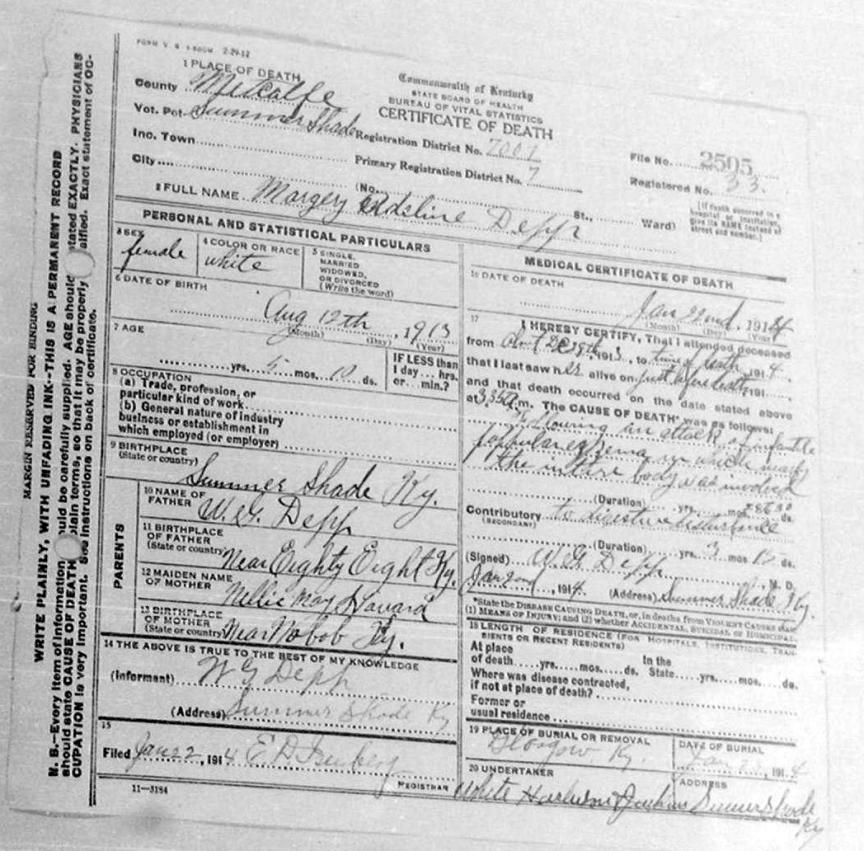 FORM V. S. 2-29-12
1 PLACE OF DEATH
County Metcalfe
Vot. Pct. Summer Shade
Inc. Town
City
Commonwealth of Kentucky
STATE BOARD OF HEALTH
BUREAU OF VITAL STATISTICS
CERTIFICATE OF DEATH
Registration District No. 7001
Primary Registration District No. 7
(No. St., Ward)
File No. 2505
Registered No. 33
[If death occurred in a
hospital or institution,
give its NAME instead of
street and number.]
2 FULL NAME Margery Adeline Depp
PERSONAL AND STATISTICAL PARTICULARS
3 SEX
female
4 COLOR OR RACE
white
5 SINGLE,
MARRIED
WIDOWED,
OR DIVORCED
(Write the word)
6 DATE OF BIRTH
Aug 12th, 1913
(Month) (Day) (Year)
7 AGE
yrs. 5 mos. 10 ds.
IF LESS than
1 day hrs.
or min.?
8 OCCUPATION
(a) Trade, profession, or
particular kind of work
(b) General nature of industry
business or establishment in
which employed (or employer)
9 BIRTHPLACE
(State or country)
Summer Shade Ky.
PARENTS
10 NAME OF
FATHER
W. G. Depp
11 BIRTHPLACE
OF FATHER
(State or country)
Near Eighty Eight Ky.
12 MAIDEN NAME
OF MOTHER
Nellie May Howard
13 BIRTHPLACE
OF MOTHER
(State or country)
Near Nobob Ky.
14 THE ABOVE IS TRUE TO THE BEST OF MY KNOWLEDGE
(Informant) W G Depp
(Address) Summer Shade Ky
15
Filed Jan 22, 1914 E. D.
REGISTRAR
11-3184
MEDICAL CERTIFICATE OF DEATH
16 DATE OF DEATH
Jan 22nd, 1914
(Month) (Day) (Year)
17 I HEREBY CERTIFY, That I attended deceased
from 1913, to time of death, 1914
that I last saw her alive on just before death, 191
and that death occurred on the date stated above
at 3 35 a m. The CAUSE OF DEATH* was as follows:
Following an attack of infantile
eczema in which nearly
the intire body was involved
(Duration) yrs. mos. ds.
Contributory to digestive disturbance
(SECONDARY)
(Duration) yrs. mos. ds.
(Signed) W G Depp M. D.
Jan 22nd, 1914 (Address) Summer Shade Ky.
*State the DISEASE CAUSING DEATH, or, in deaths from VIOLENT CAUSES state
(1) MEANS OF INJURY; and (2) whether ACCIDENTAL, SUICIDAL or HOMICIDAL
18 LENGTH OF RESIDENCE (FOR HOSPITALS, INSTITUTIONS, TRAN-
SIENTS OR RECENT RESIDENTS)
At place
of death yrs. mos. ds.
In the
State yrs. mos. ds.
Where was disease contracted,
if not at place of death?
Former or
usual residence
19 PLACE OF BURIAL OR REMOVAL
Glasgow Ky.
DATE OF BURIAL
Jan 1914
20 UNDERTAKER
White
ADDRESS
Summer Shade
Ky
MARGIN RESERVED FOR BINDING
WRITE PLAINLY, WITH UNFADING INK-THIS IS A PERMANENT RECORD
N. B.-Every item of information should be carefully supplied. AGE should be stated EXACTLY. PHYSICIANS
should state CAUSE OF DEATH in plain terms, so that it may be properly classified. Exact statement of OC-
CUPATION is very important. See instructions on back of certificate.